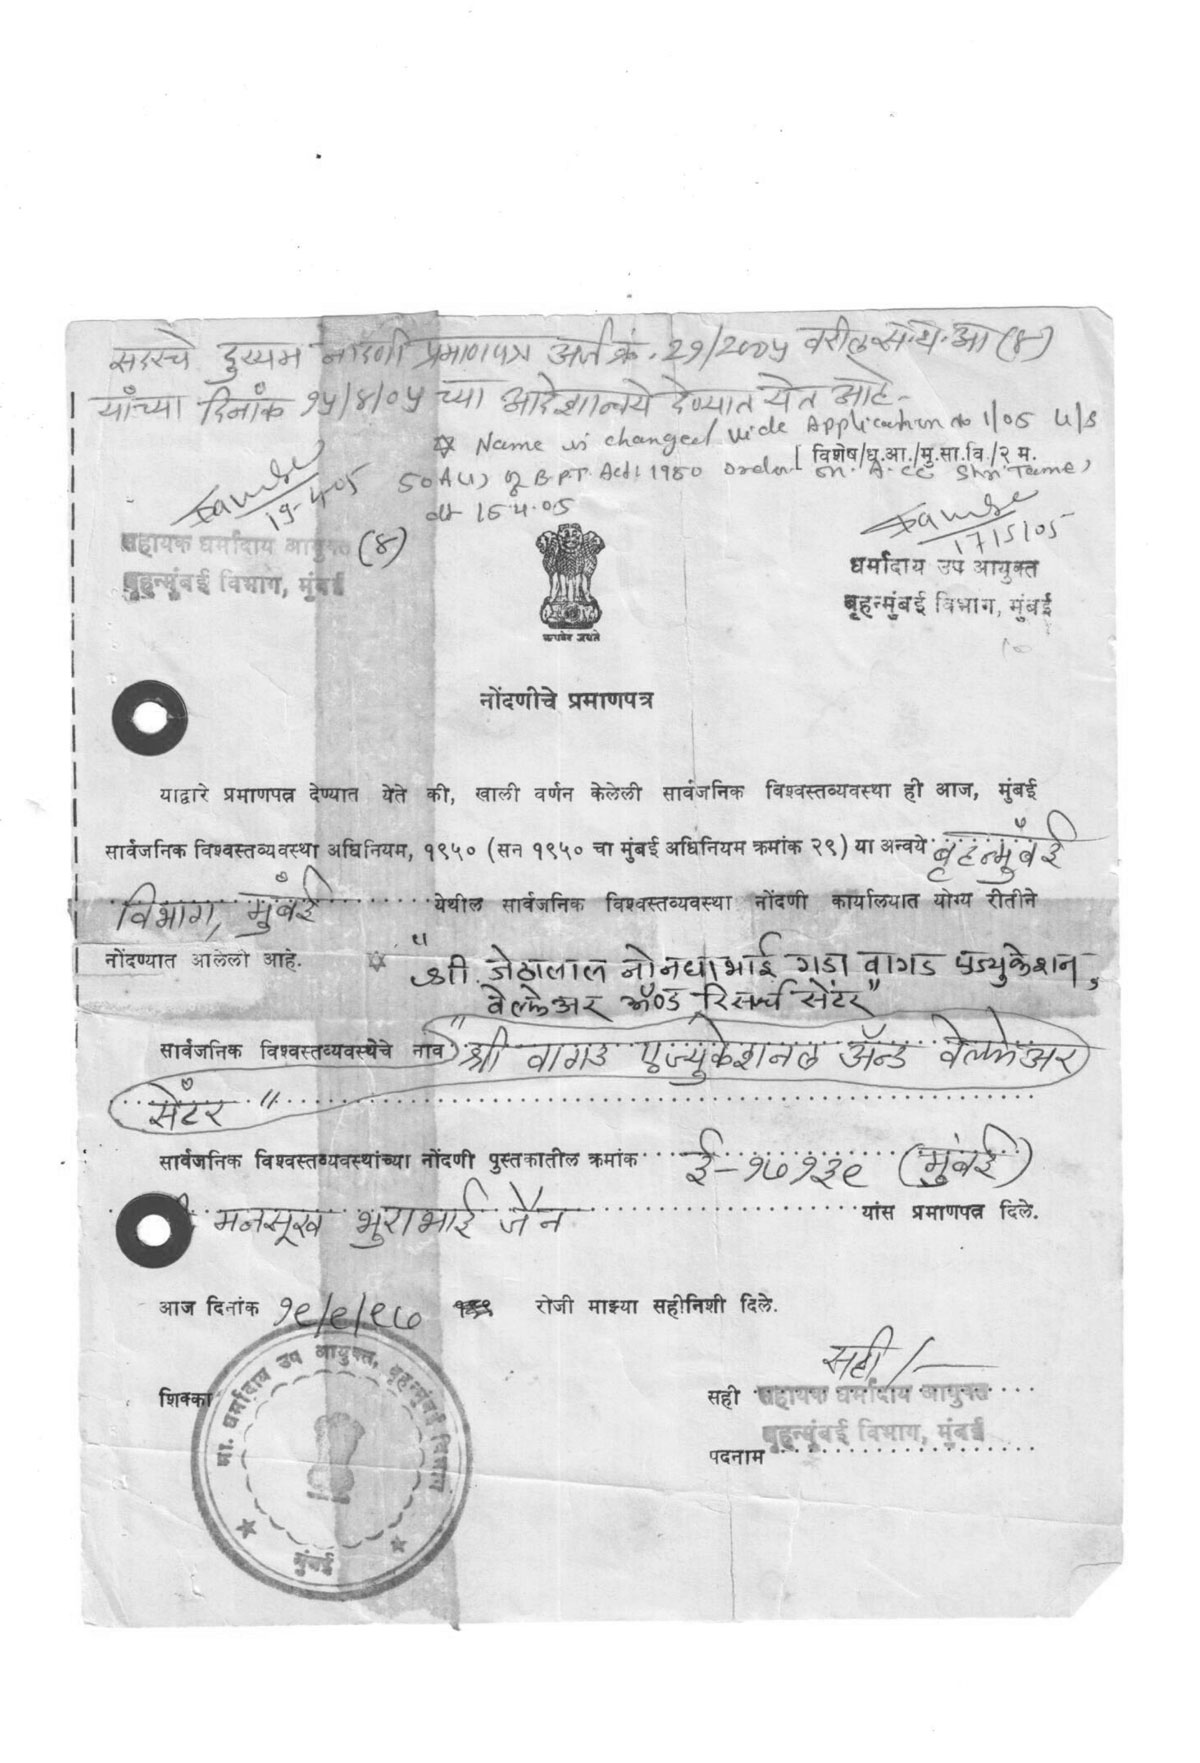 सदरचे दुय्यम नोंदणी प्रमाणपत्र अर्ज क्रं. २१/2००५ वरील स.ध.आ (४)
यांच्या दिनांक १५/४/०५ च्या आदेशान्वये देण्यात येत आहे.
✡ Name is changed vide Application no 1/05 U/S
[ विशेष/ध.आ./मु.सा.वि./२ म.
50A B.P.T. Act 1950 order A.CC Shri
dt 15.4.05
19-4-05
17/5/05
सहायक धर्मादाय आयुक्त (४)
बृहन्मुंबई विभाग, मुंबई
धर्मादाय उप आयुक्त
बृहन्मुंबई विभाग, मुंबई
सत्यमेव जयते
नोंदणीचे प्रमाणपत्र
याद्वारे प्रमाणपत्र देण्यात येते की, खाली वर्णन केलेली सार्वजनिक विश्वस्तव्यवस्था ही आज, मुंबई
सार्वजनिक विश्वस्तव्यवस्था अधिनियम, १९५० (सन १९५० चा मुंबई अधिनियम क्रमांक २९) या अन्वये बृहन्मुंबई
विभाग, मुंबई येथील सार्वजनिक विश्वस्तव्यवस्था नोंदणी कार्यालयात योग्य रीतीने
नोंदण्यात आलेली आहे. ✡ "श्री जेठालाल नोनधाभाई गडा वागड एज्युकेशन,
वेल्फेअर अॅण्ड रिसर्च सेंटर"
सार्वजनिक विश्वस्तव्यवस्थेचे नाव "श्री वागड एज्युकेशनल अॅन्ड वेल्फेअर
सेंटर"
सार्वजनिक विश्वस्तव्यवस्थांच्या नोंदणी पुस्तकातील क्रमांक ई-१७१३९ (मुंबई)
मनसूख भुराभाई जैन यांस प्रमाणपत्र दिले.
आज दिनांक १९/९/९७ रोजी माझ्या सहीनिशी दिले.
सही/-
शिक्का
सही सहायक धर्मादाय आयुक्त
बृहन्मुंबई विभाग, मुंबई
पदनाम
मा. धर्मादाय उप आयुक्त, बृहन्मुंबई विभाग
मुंबई